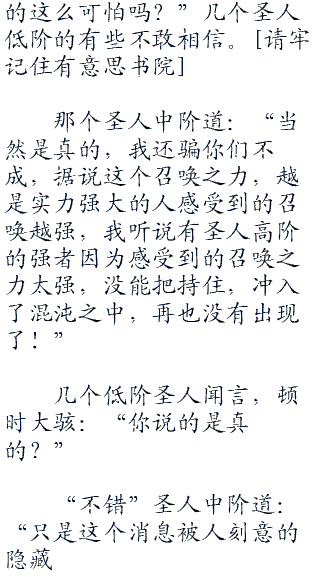 的这么可怕吗？”几个圣人
低阶的有些不敢相信。[请牢
记住有意思书院]
那个圣人中阶道：“当
然是真的，我还骗你们不
成，据说这个召唤之力，越
是实力强大的人感受到的召
唤越强，我听说有圣人高阶
的强者因为感受到的召唤之
力太强，没能把持住，冲入
了混沌之中，再也没有出现
了！”
几个低阶圣人闻言，顿
时大骇：“你说的是真
的？”
“不错”圣人中阶道：
“只是这个消息被人刻意的
隐藏